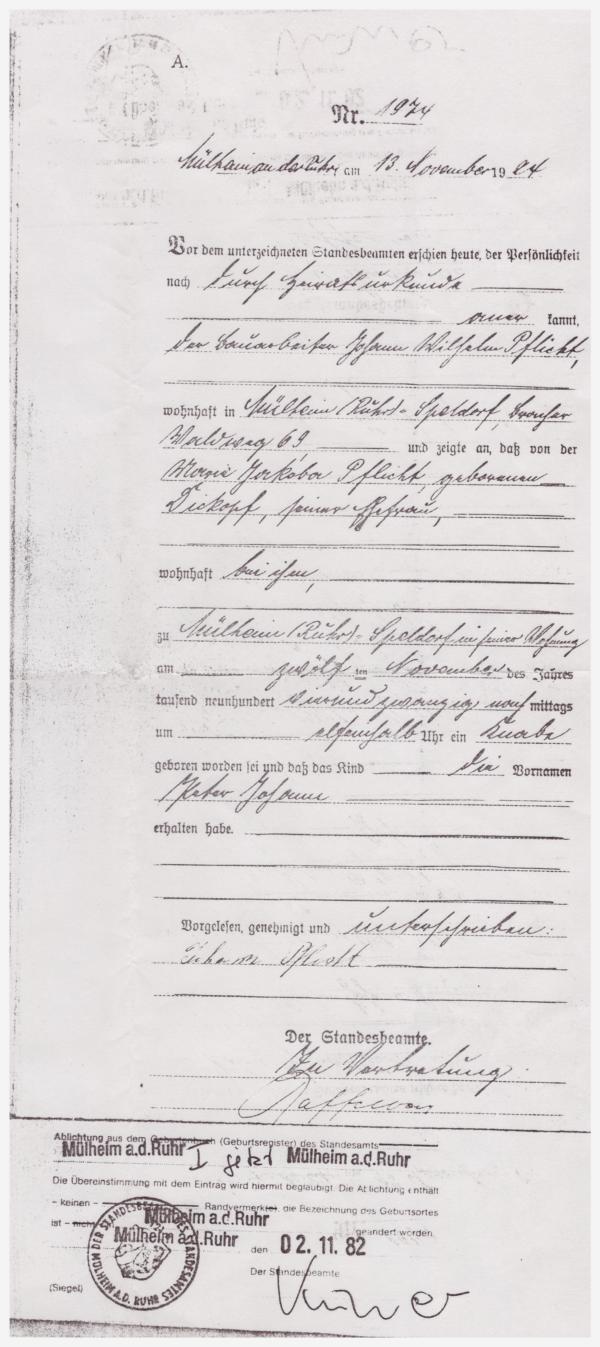 A.
Nr. 1974
Mülheim an der Ruhr, am 13. November 1924
Vor dem unterzeichneten Standesbeamten erschien heute, der Persönlichkeit
nach durch Heiratsurkunde
aner kannt,
der Bauarbeiter Johann Wilhelm Pflicht,
wohnhaft in Mülheim (Ruhr)-Speldorf, Broicher
Waldweg 69 und zeigte an, daß von der
Marie Jakoba Pflicht, geborenen
Dickopf, seiner Ehefrau,
wohnhaft bei ihm,
zu Mülheim (Ruhr)-Speldorf in seiner Wohnung
am zwölf ten November des Jahres
tausend neunhundert vierundzwanzig nach mittags
um elfeinhalb Uhr ein Knabe
geboren worden sei und daß das Kind die Vornamen
Peter Johann
erhalten habe.
Vorgelesen, genehmigt und unterschrieben:
Johann Pflicht
Der Standesbeamte.
In Vertretung
Ablichtung aus dem Geburtenbuch (Geburtsregister) des Standesamts
Mülheim a.d.Ruhr I jetzt Mülheim a.d.Ruhr
Die Übereinstimmung mit dem Eintrag wird hiermit beglaubigt. Die Ablichtung enthält
- keinen - Randvermerk(e), die Bezeichnung des Geburtsortes
Mülheim a.d.Ruhr
ist - nicht Mülheim a.d.Ruhr geändert worden.
den 02.11.82
Der Standesbeamte
(Siegel)
DER STANDESBEAMTE DES STANDESAMTES MÜLHEIM A.D. RUHR